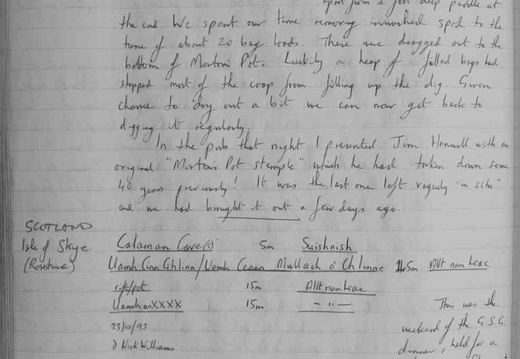 apart from a foot deep puddle at
the end. We spent our time removing inwashed spoil to the
tune of about 20 bag loads. These were dragged out to the
bottom of Mortons Pot. Luckily a heap of filled bags had
stopped most of the crap from filling up the dig. Given
chance to dry out a bit we can now get back to
digging it regularly.
In the pub that night I presented Jim Hanwell with an
original "Mortons Pot stemple" which he had taken down some
40 years previously! It was the last one left vaguely "in situ"
and we had brought it out a few days ago.
SCOTLAND
Isle of Skye Calaman Cave(s) 5m Suishnish
(Routine) Uamh Cinn Ghlinn/Uamh Ceann Mullach a' Ghlinne 45m Allt nan Leac
rift/pot 15m Allt nan Leac
Uamh an XXXX 15m - " -
23/10/93 This was the
D Nick Williams weekend of the G.S.G.
dinner, held for a